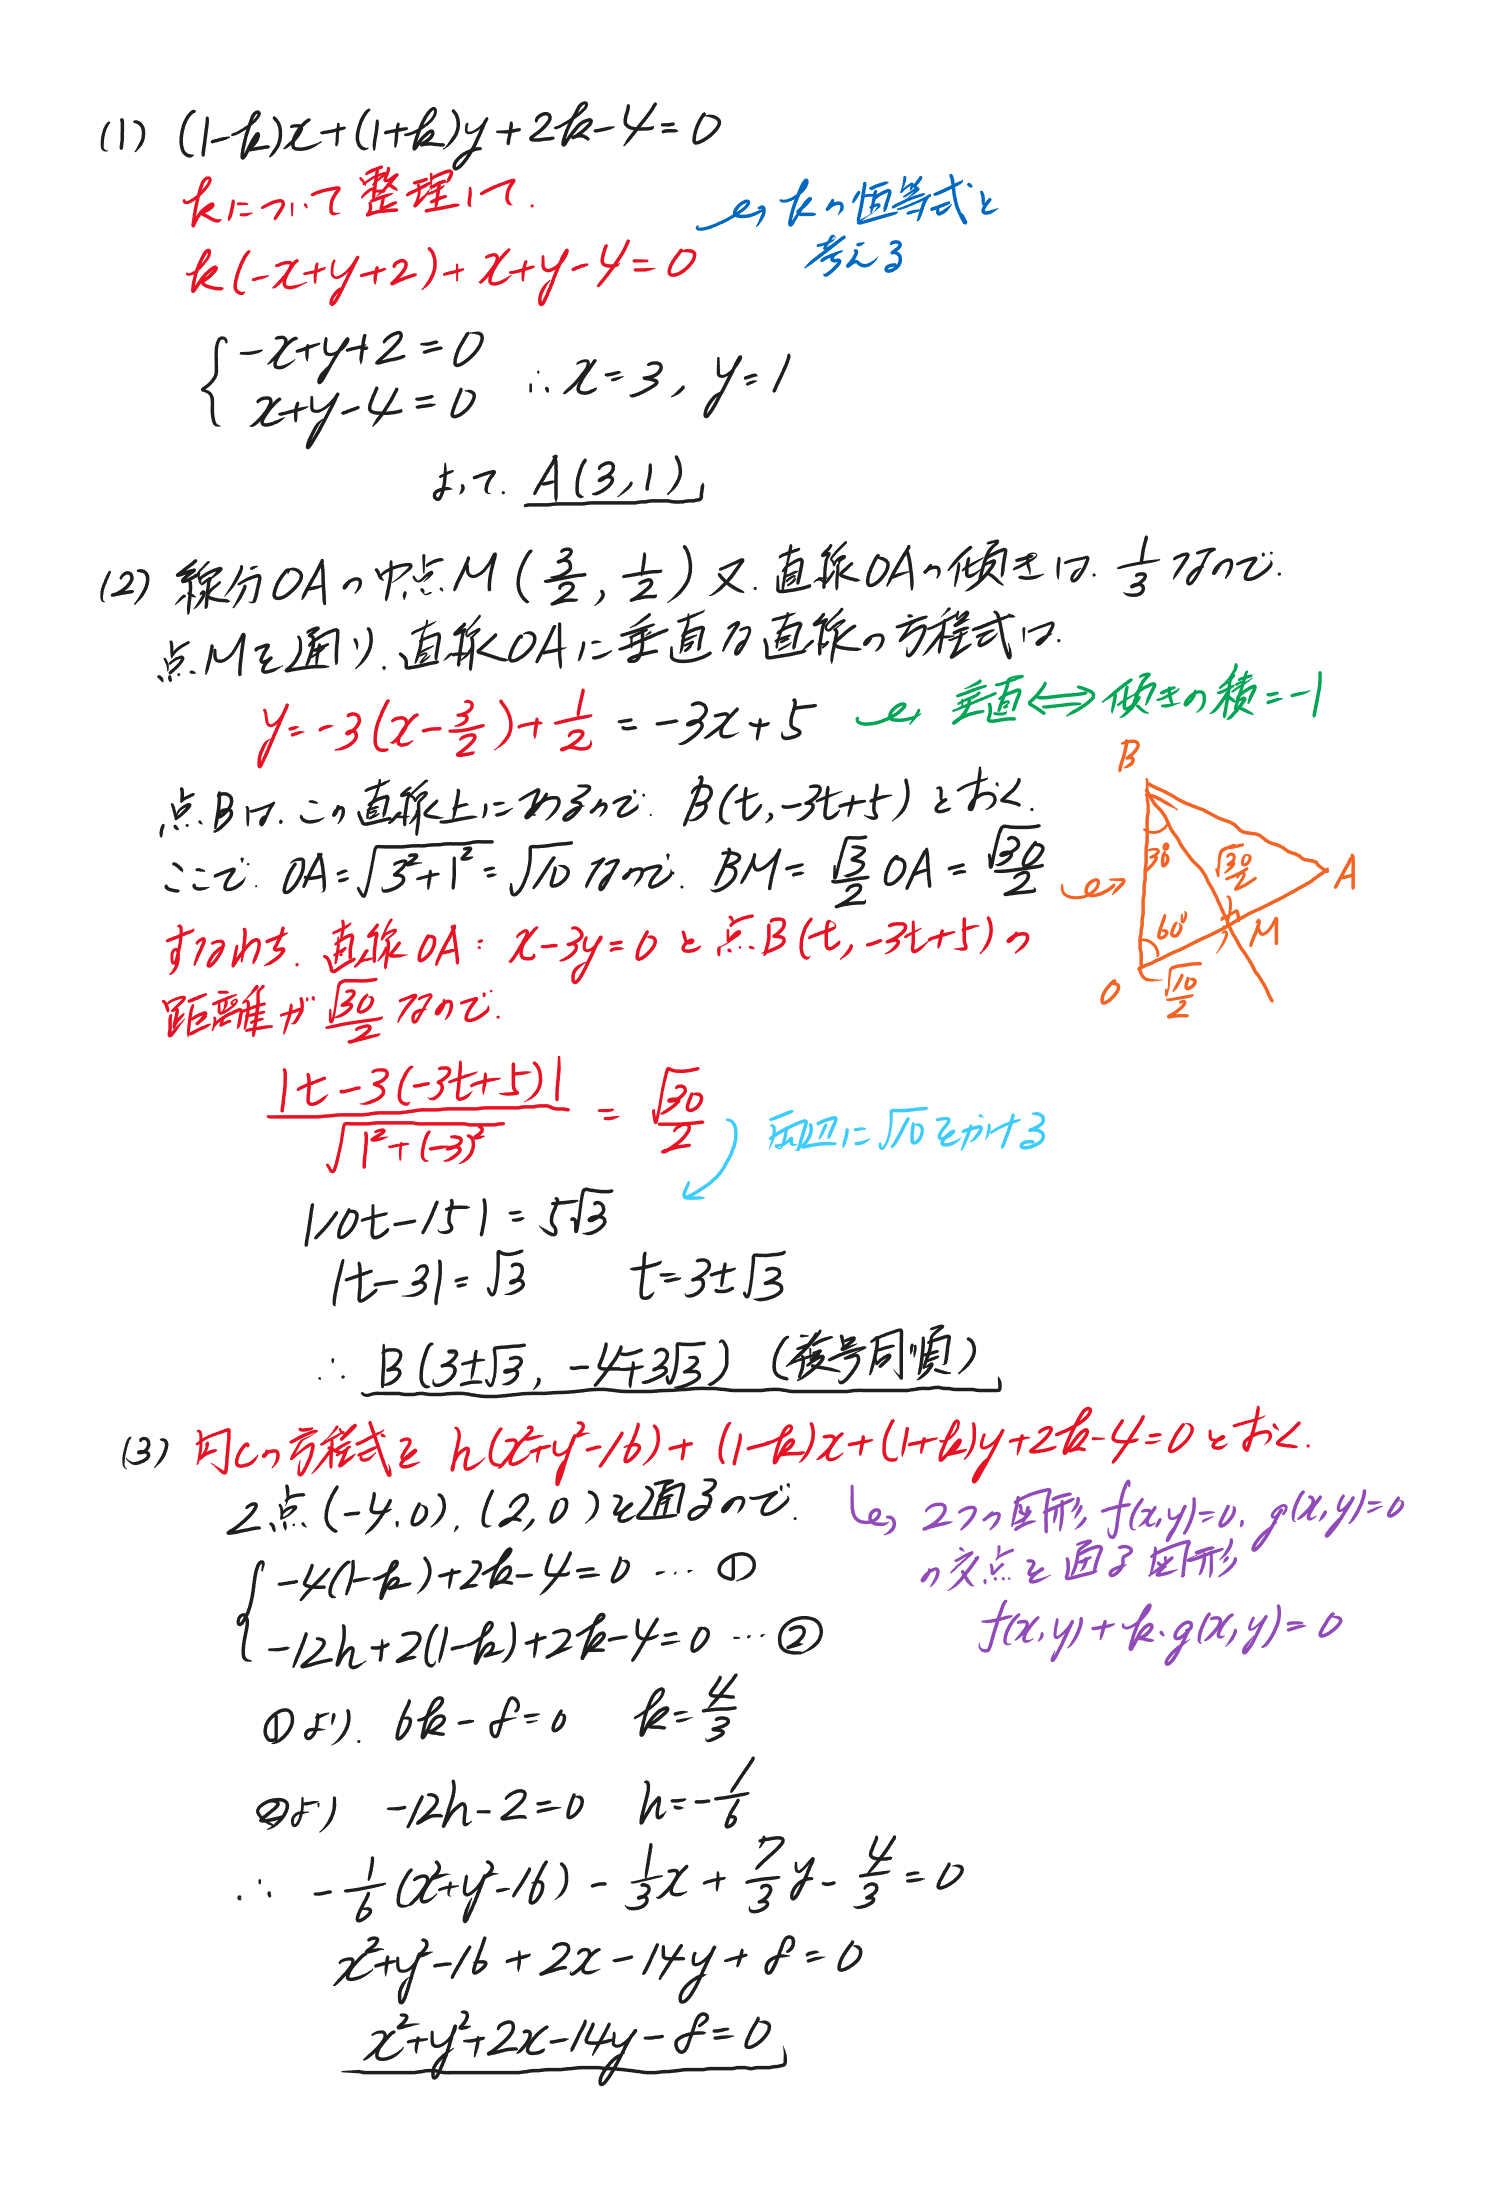 (1) (1-k)x+(1+k)y+2k-4=0
kについて整理して.
→ kの恒等式と
考える
k(-x+y+2)+x+y-4=0
{ -x+y+2=0
x+y-4=0
∴ x=3, y=1
よって. A(3,1)
(2) 線分OAの中点M(3/2, 1/2) 又.直線OAの傾きは. 1/3 なので.
点Mを通り.直線OAに垂直な直線の方程式は.
y=-3(x-3/2)+1/2 = -3x+5
→ 垂直⇔傾きの積=-1
点Bは.この直線上にあるので. B(t,-3t+5)とおく.
ここで. OA=√(3²+1²)=√10なので. BM=√3/2 OA=√30/2
→
B
30°
√30/2
A
60°
M
O
√10/2
すなわち.直線OA: x-3y=0と点B(t,-3t+5)の
距離が √30/2 なので.
|t-3(-3t+5)|/√(1²+(-3)²) = √30/2
両辺に√10をかける
|10t-15|=5√3
|t-3|=√3 t=3±√3
∴ B(3±√3, -4∓3√3) (複号同順)
(3) 円Cの方程式を h(x²+y²-16)+(1-k)x+(1+k)y+2k-4=0とおく.
2点(-4,0), (2,0)を通るので.
→ 2つの図形 f(x,y)=0, g(x,y)=0
の交点を通る図形
f(x,y)+k·g(x,y)=0
{ -4(1-k)+2k-4=0 … ①
-12h+2(1-k)+2k-4=0 … ②
①より. 6k-8=0 k=4/3
②より -12h-2=0 h=-1/6
∴ -1/6(x²+y²-16)-1/3x+7/3y-4/3=0
x²+y²-16+2x-14y+8=0
x²+y²+2x-14y-8=0